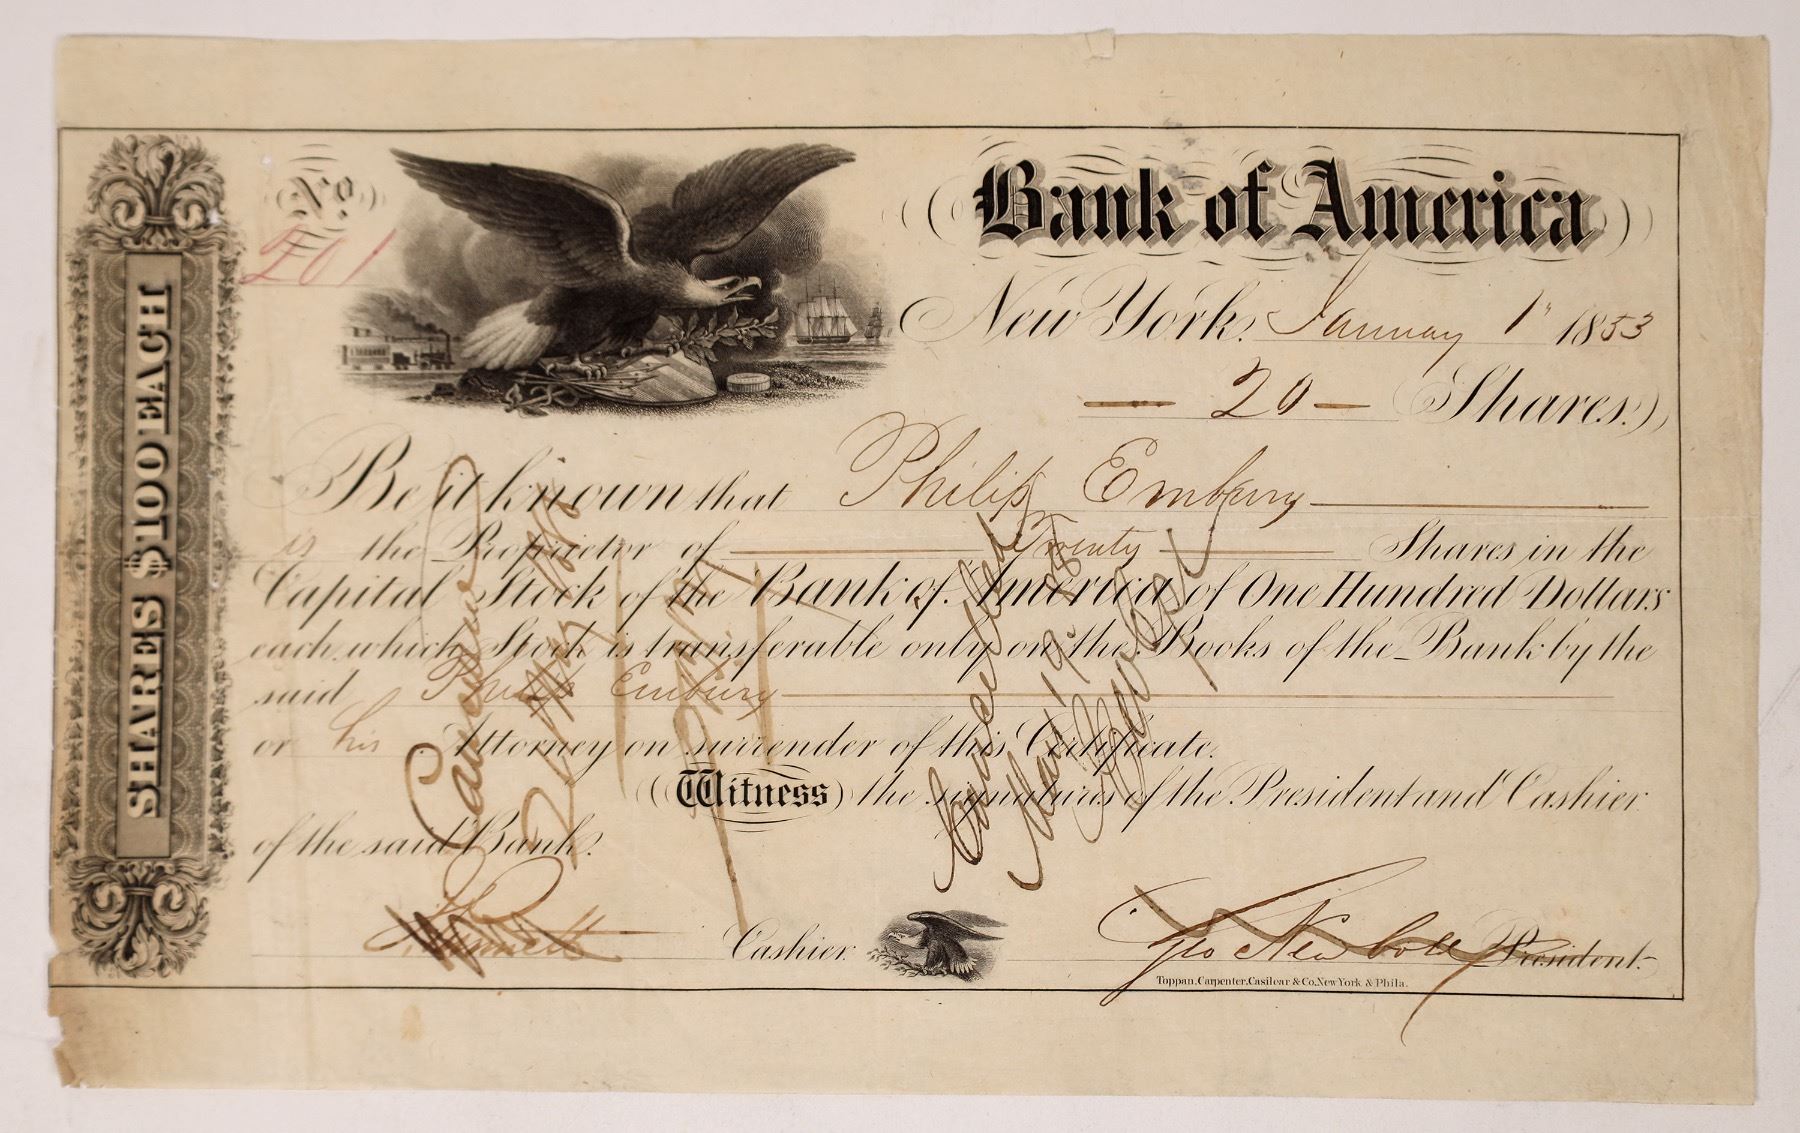 SHARES $100 EACH
No.
201
Bank of America
New York, January 1st 1853
20 Shares.
Be it known that Philip Embury
is the Proprietor of Twenty Shares in the
Capital Stock of the Bank of America of One Hundred Dollars
each which Stock is transferable only on the Books of the Bank by the
said Philip Embury
or his Attorney on surrender of this Certificate.
Witness the signatures of the President and Cashier
of the said Bank.
Cashier.
Geo Newbold President.
Toppan, Carpenter, Casilear & Co. New York & Phila.
Cancelled
May 19